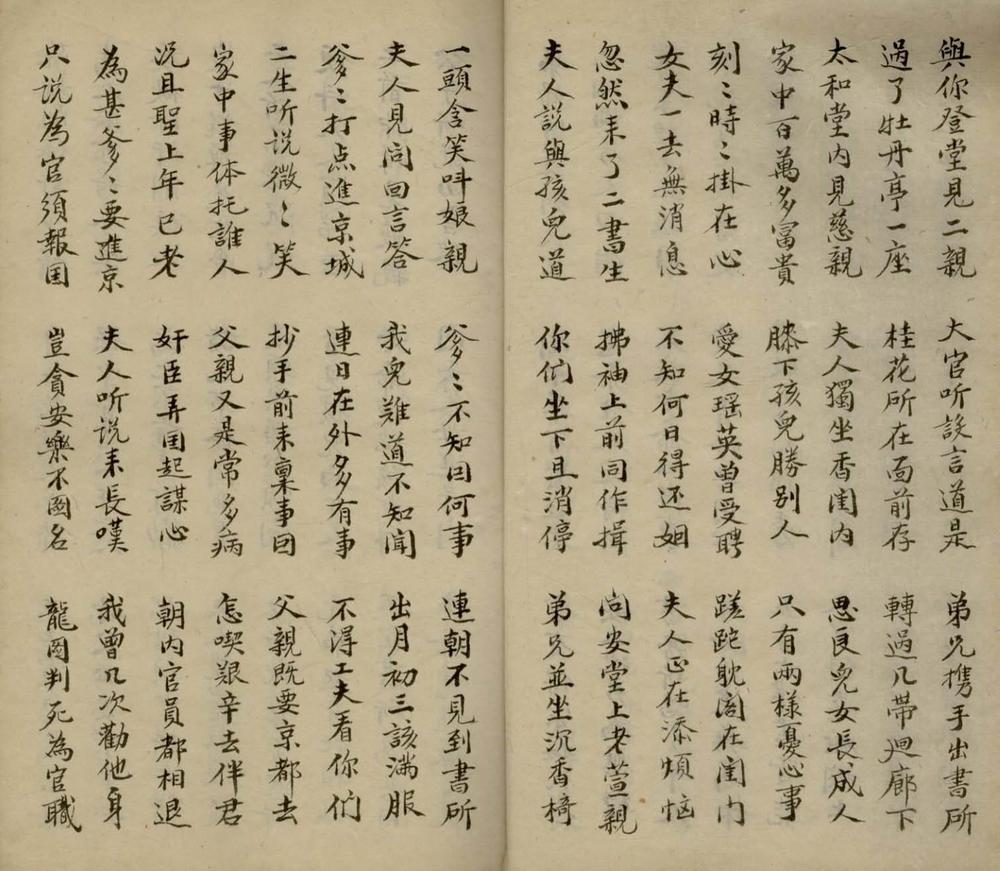 與你登堂見二親 大官听説言道是 弟兄携手出書所
過了牡丹亭一座 桂花所在面前存 轉過几帶廻廊下
太和堂內見慈親 夫人獨坐香闺内 思良兒女長成人
家中百萬多富貴 膝下孩兒勝别人 只有兩様憂心事
刻〻時〻掛在心 愛女瑶英曾受聘 蹉跎躭阁在闺门
女夫一去無消息 不知何日得还姻 夫人正在添煩恼
忽然来了二書生 拂袖上前同作揖 问安堂上老萱親
夫人說與孩兒道 你们坐下且消停 弟兄並坐沉香椅
一頭含笑呌娘親 爹〻不知因何事 連朝不見到書所
夫人見问回言答 我兒难道不知聞 出月初三該滿服
爹〻打点進京城 連日在外多有事 不得工夫看你们
二生听说微〻笑 抄手前来稟事因 父親既要京都去
家中事体托誰人 父親又是常多病 怎喫艰辛去伴君
况且聖上年已老 奸臣弄国起謀心 朝内官員都相退
為甚爹〻要進京 夫人听说来長嘆 我曾几次勸他身
只说為官須報国 豈貪安樂不圖名 龍图判死為官職